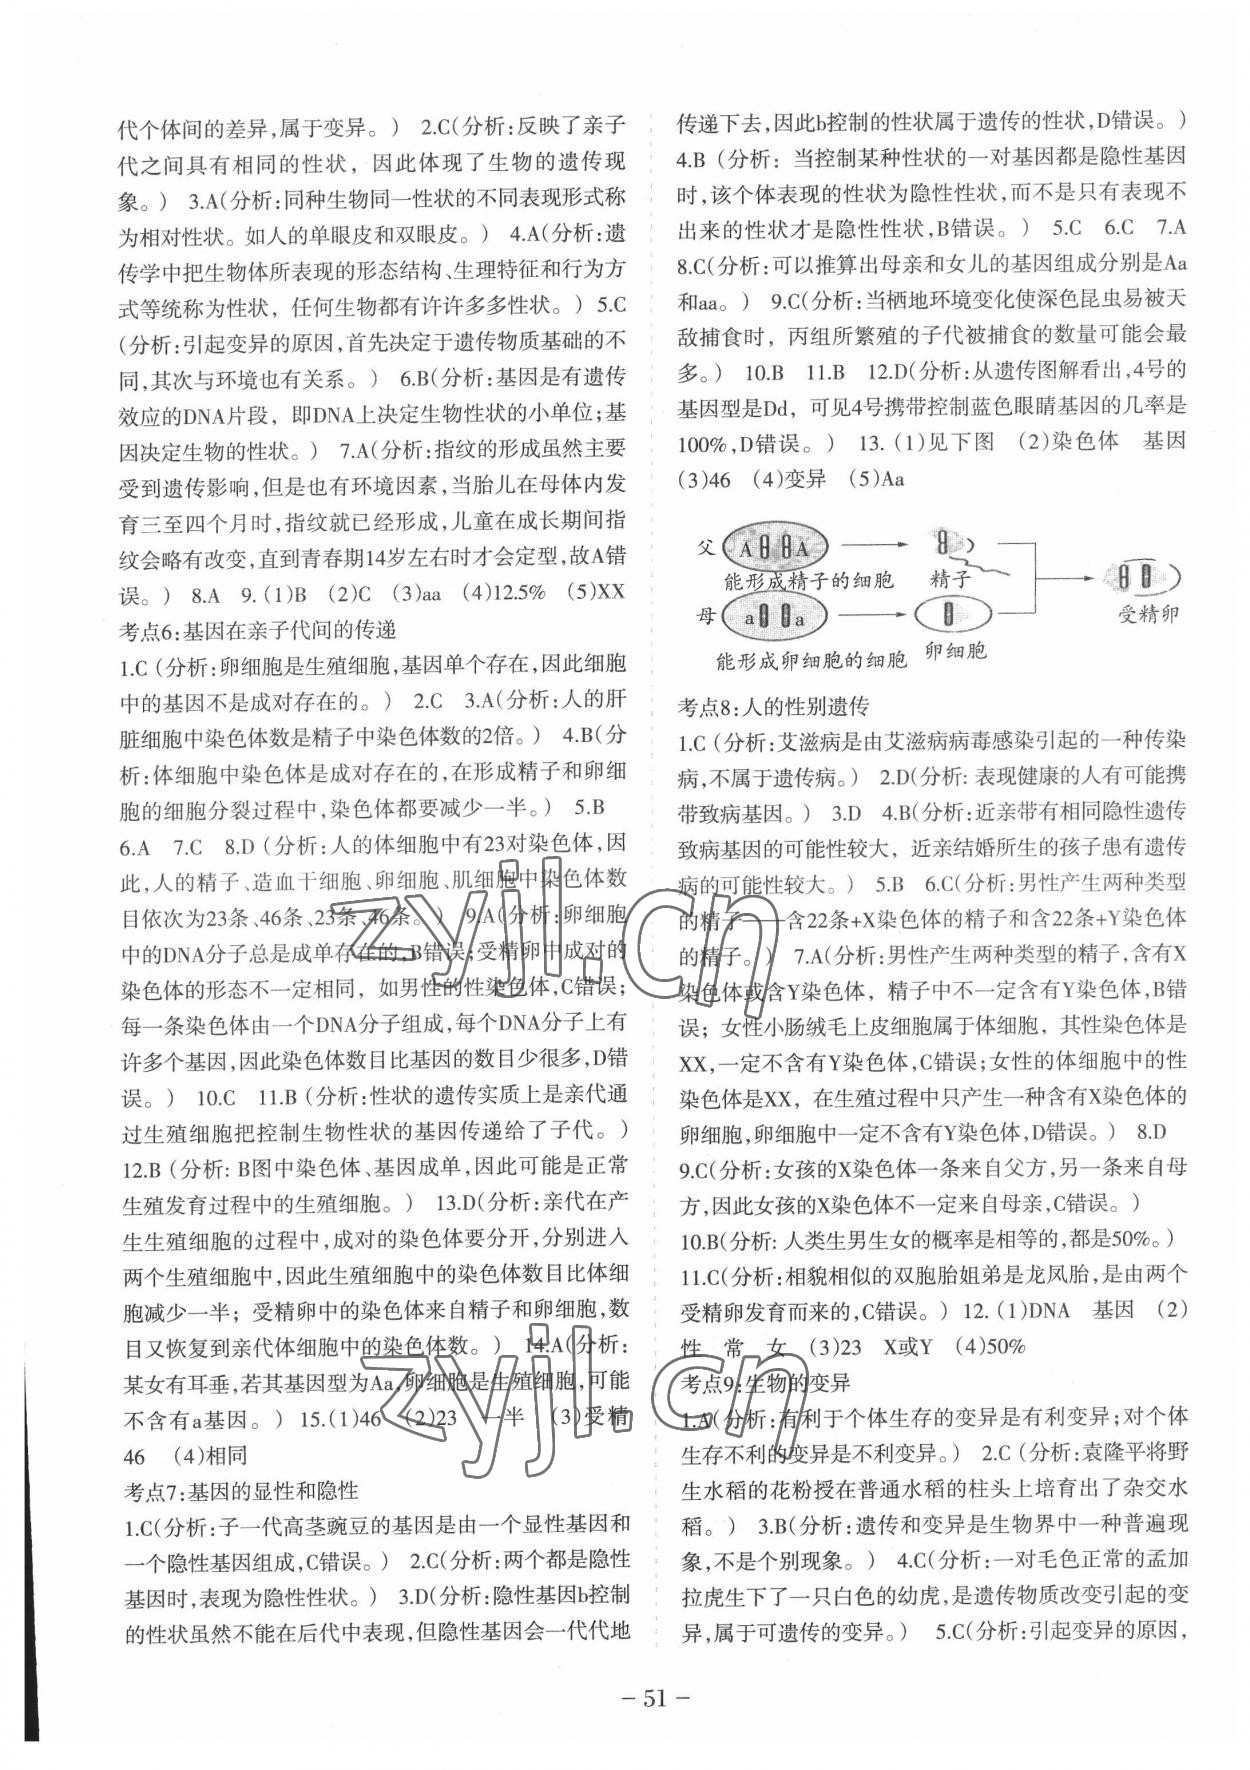 代个体间的差异,属于变异。) 2.C(分析:反映了亲子
代之间具有相同的性状，因此体现了生物的遗传现
象。) 3.A(分析:同种生物同一性状的不同表现形式称
为相对性状。如人的单眼皮和双眼皮。) 4.A(分析:遗
传学中把生物体所表现的形态结构、生理特征和行为方
式等统称为性状，任何生物都有许许多多性状。) 5.C
(分析:引起变异的原因,首先决定于遗传物质基础的不
同,其次与环境也有关系。) 6.B(分析:基因是有遗传
效应的DNA片段，即DNA上决定生物性状的小单位;基
因决定生物的性状。) 7.A(分析:指纹的形成虽然主要
受到遗传影响,但是也有环境因素,当胎儿在母体内发
育三至四个月时,指纹就已经形成,儿童在成长期间指
纹会略有改变,直到青春期14岁左右时才会定型,故A错
误。) 8.A 9.(1)B (2)C (3)aa (4)12.5% (5)XX
考点6:基因在亲子代间的传递
1.C (分析:卵细胞是生殖细胞,基因单个存在,因此细胞
中的基因不是成对存在的。) 2.C 3.A(分析:人的肝
脏细胞中染色体数是精子中染色体数的2倍。) 4.B(分
析:体细胞中染色体是成对存在的,在形成精子和卵细
胞的细胞分裂过程中,染色体都要减少一半。) 5.B
6.A 7.C 8.D (分析:人的体细胞中有23对染色体,因
此,人的精子、造血干细胞、卵细胞、肌细胞中染色体数
目依次为23条、46条、23条、46条。) 9.A(分析:卵细胞
中的DNA分子总是成单存在的,B错误;受精卵中成对的
染色体的形态不一定相同，如男性的性染色体,C错误;
每一条染色体由一个DNA分子组成,每个DNA分子上有
许多个基因,因此染色体数目比基因的数目少很多,D错
误。) 10.C 11.B (分析:性状的遗传实质上是亲代通
过生殖细胞把控制生物性状的基因传递给了子代。)
12.B (分析: B图中染色体、基因成单,因此可能是正常
生殖发育过程中的生殖细胞。) 13.D(分析:亲代在产
生生殖细胞的过程中,成对的染色体要分开,分别进入
两个生殖细胞中,因此生殖细胞中的染色体数目比体细
胞减少一半；受精卵中的染色体来自精子和卵细胞,数
目又恢复到亲代体细胞中的染色体数。) 14.A(分析:
某女有耳垂,若其基因型为Aa,卵细胞是生殖细胞,可能
不含有a基因。) 15.(1)46 (2)23 一半 (3)受精
46 (4)相同
考点7:基因的显性和隐性
1.C(分析:子一代高茎豌豆的基因是由一个显性基因和
一个隐性基因组成,C错误。) 2.C(分析:两个都是隐性
基因时,表现为隐性性状。) 3.D(分析:隐性基因b控制
的性状虽然不能在后代中表现,但隐性基因会一代代地
传递下去,因此b控制的性状属于遗传的性状,D错误。)
4.B (分析：当控制某种性状的一对基因都是隐性基因
时,该个体表现的性状为隐性性状,而不是只有表现不
出来的性状才是隐性性状,B错误。) 5.C 6.C 7.A
8.C(分析:可以推算出母亲和女儿的基因组成分别是Aa
和aa。) 9.C(分析:当栖地环境变化使深色昆虫易被天
敌捕食时，丙组所繁殖的子代被捕食的数量可能会最
多。) 10.B 11.B 12.D(分析:从遗传图解看出,4号的
基因型是Dd，可见4号携带控制蓝色眼睛基因的几率是
100%,D错误。) 13.(1)见下图 (2)染色体 基因
(3)46 (4)变异 (5)Aa
父 A A
能形成精子的细胞 精子
母 a a
能形成卵细胞的细胞 卵细胞
受精卵
考点8:人的性别遗传
1.C (分析:艾滋病是由艾滋病病毒感染引起的一种传染
病,不属于遗传病。) 2.D(分析: 表现健康的人有可能携
带致病基因。) 3.D 4.B(分析:近亲带有相同隐性遗传
致病基因的可能性较大，近亲结婚所生的孩子患有遗传
病的可能性较大。) 5.B 6.C(分析:男性产生两种类型
的精子——含22条+X染色体的精子和含22条+Y染色体
的精子。) 7.A(分析:男性产生两种类型的精子,含有X
染色体或含Y染色体，精子中不一定含有Y染色体,B错
误；女性小肠绒毛上皮细胞属于体细胞，其性染色体是
XX,一定不含有Y染色体,C错误;女性的体细胞中的性
染色体是XX，在生殖过程中只产生一种含有X染色体的
卵细胞,卵细胞中一定不含有Y染色体,D错误。) 8.D
9.C(分析:女孩的X染色体一条来自父方,另一条来自母
方,因此女孩的X染色体不一定来自母亲,C错误。)
10.B(分析: 人类生男生女的概率是相等的,都是50%。)
11.C(分析:相貌相似的双胞胎姐弟是龙凤胎,是由两个
受精卵发育而来的,C错误。) 12. (1)DNA 基因 (2)
性 常 女 (3)23 X或Y (4)50%
考点9:生物的变异
1.A(分析:有利于个体生存的变异是有利变异;对个体
生存不利的变异是不利变异。) 2.C (分析:袁隆平将野
生水稻的花粉授在普通水稻的柱头上培育出了杂交水
稻。) 3.B(分析:遗传和变异是生物界中一种普遍现
象,不是个别现象。) 4.C(分析:一对毛色正常的孟加
拉虎生下了一只白色的幼虎,是遗传物质改变引起的变
异,属于可遗传的变异。) 5.C(分析:引起变异的原因,
zyjl.cn
zyjl.cn
- 51 -